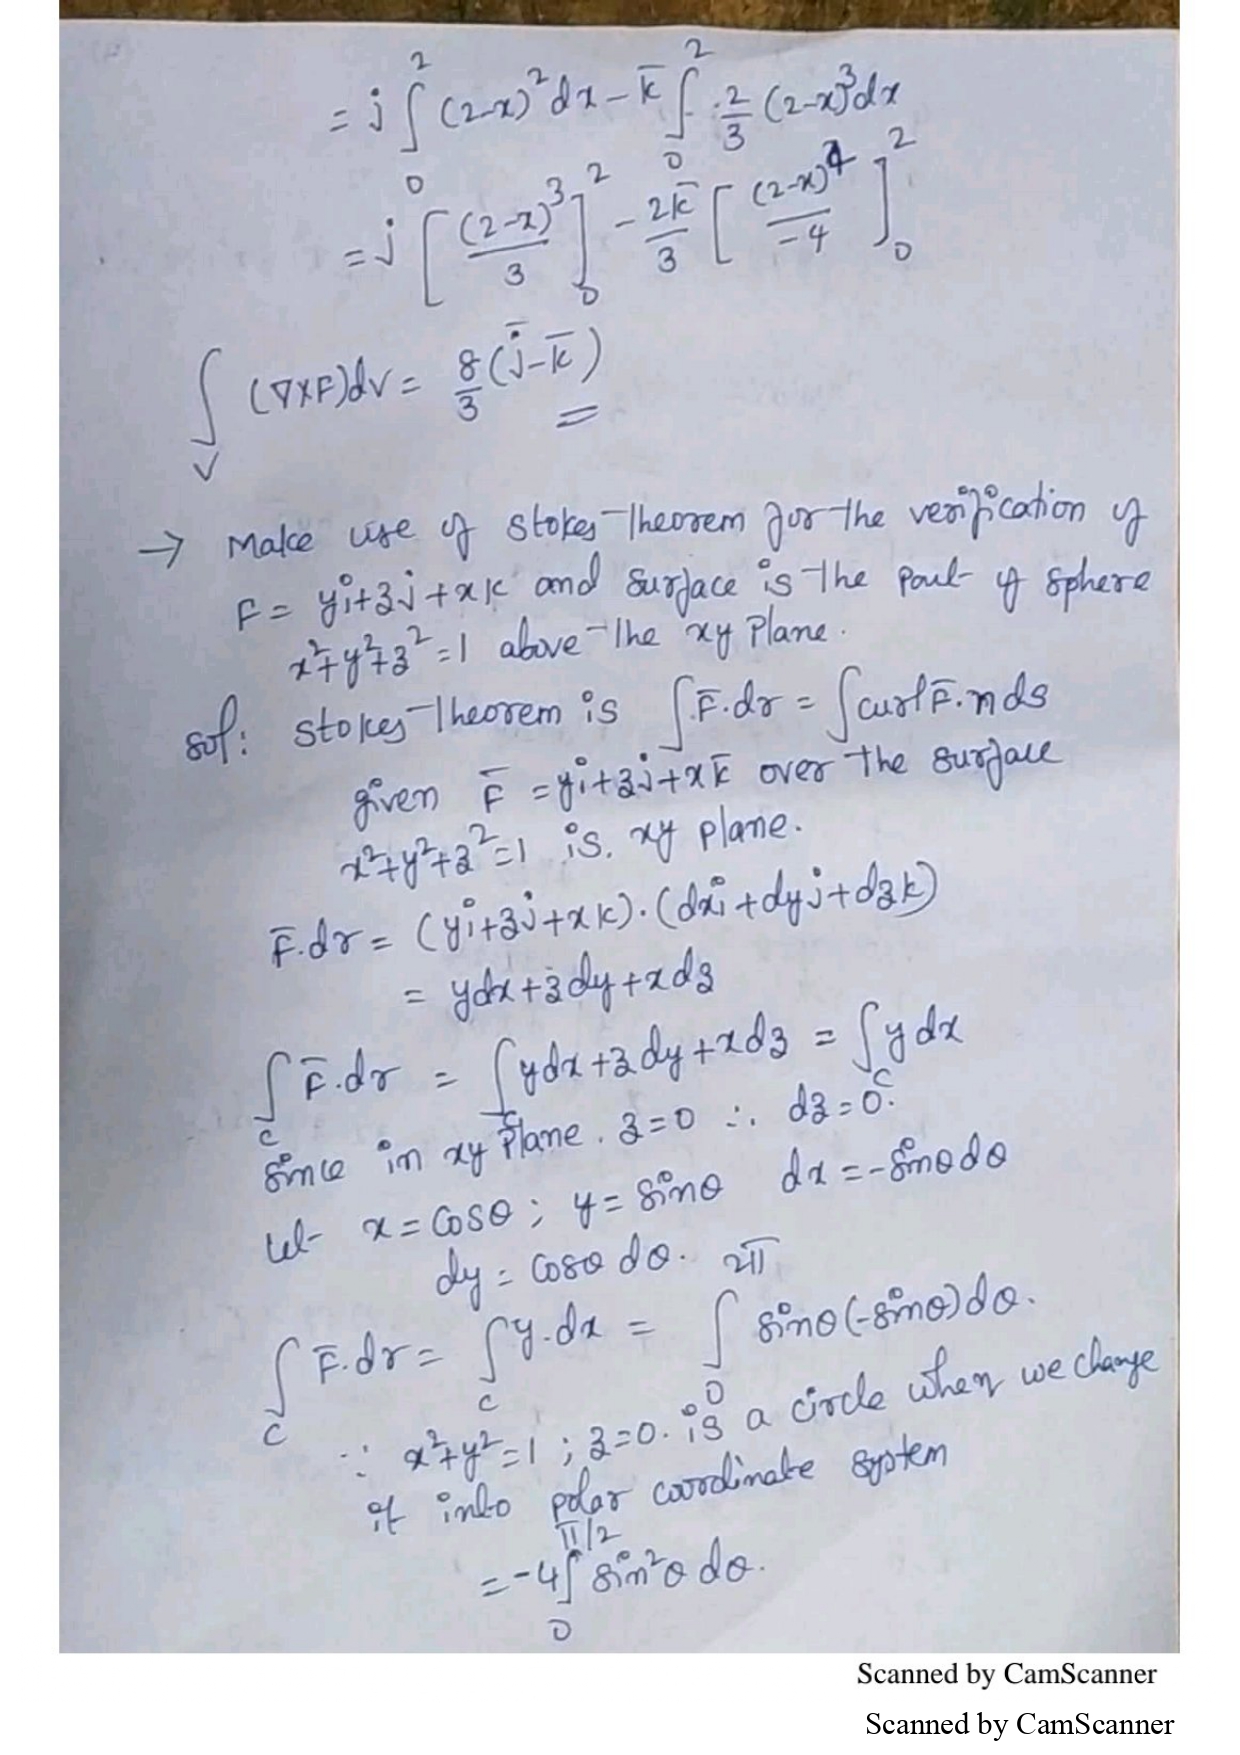 = j ∫₀² (2-x)² dx - k̄ ∫₀² 2/3 (2-x)³ dx
= j [ (2-x)³/3 ]₀² - 2k̄/3 [ (2-x)⁴/-4 ]₀²
∫_V (∇×F)dv = 8/3 (j̄ - k̄)
→ Make use of Stokes Theorem for the verification of
F = yi+zj+xk and surface is the part of sphere
x²+y²+z²=1 above the xy Plane.
Sol: Stokes Theorem is ∫F̄.dr = ∫curl F̄.n ds
given F̄ = yi+zj+xk̄ over the surface
x²+y²+z²=1 is. xy plane.
F̄.dr = (yi+zj+xk).(dxi+dyj+dzk)
= ydx+zdy+xdz
∫_C F̄.dr = ∫_C ydx+zdy+xdz = ∫_C ydx
Since in xy Plane. z=0 ∴ dz=0.
Let x=cosθ; y=sinθ dx=-sinθdθ
dy = cosθ dθ.
∫_C F̄.dr = ∫_C y.dx = ∫₀^2π sinθ(-sinθ)dθ.
∵ x²+y²=1; z=0. is a circle when we change
it into polar coordinate system
= -4∫₀^π/2 sin²θ dθ.
Scanned by CamScanner
Scanned by CamScanner